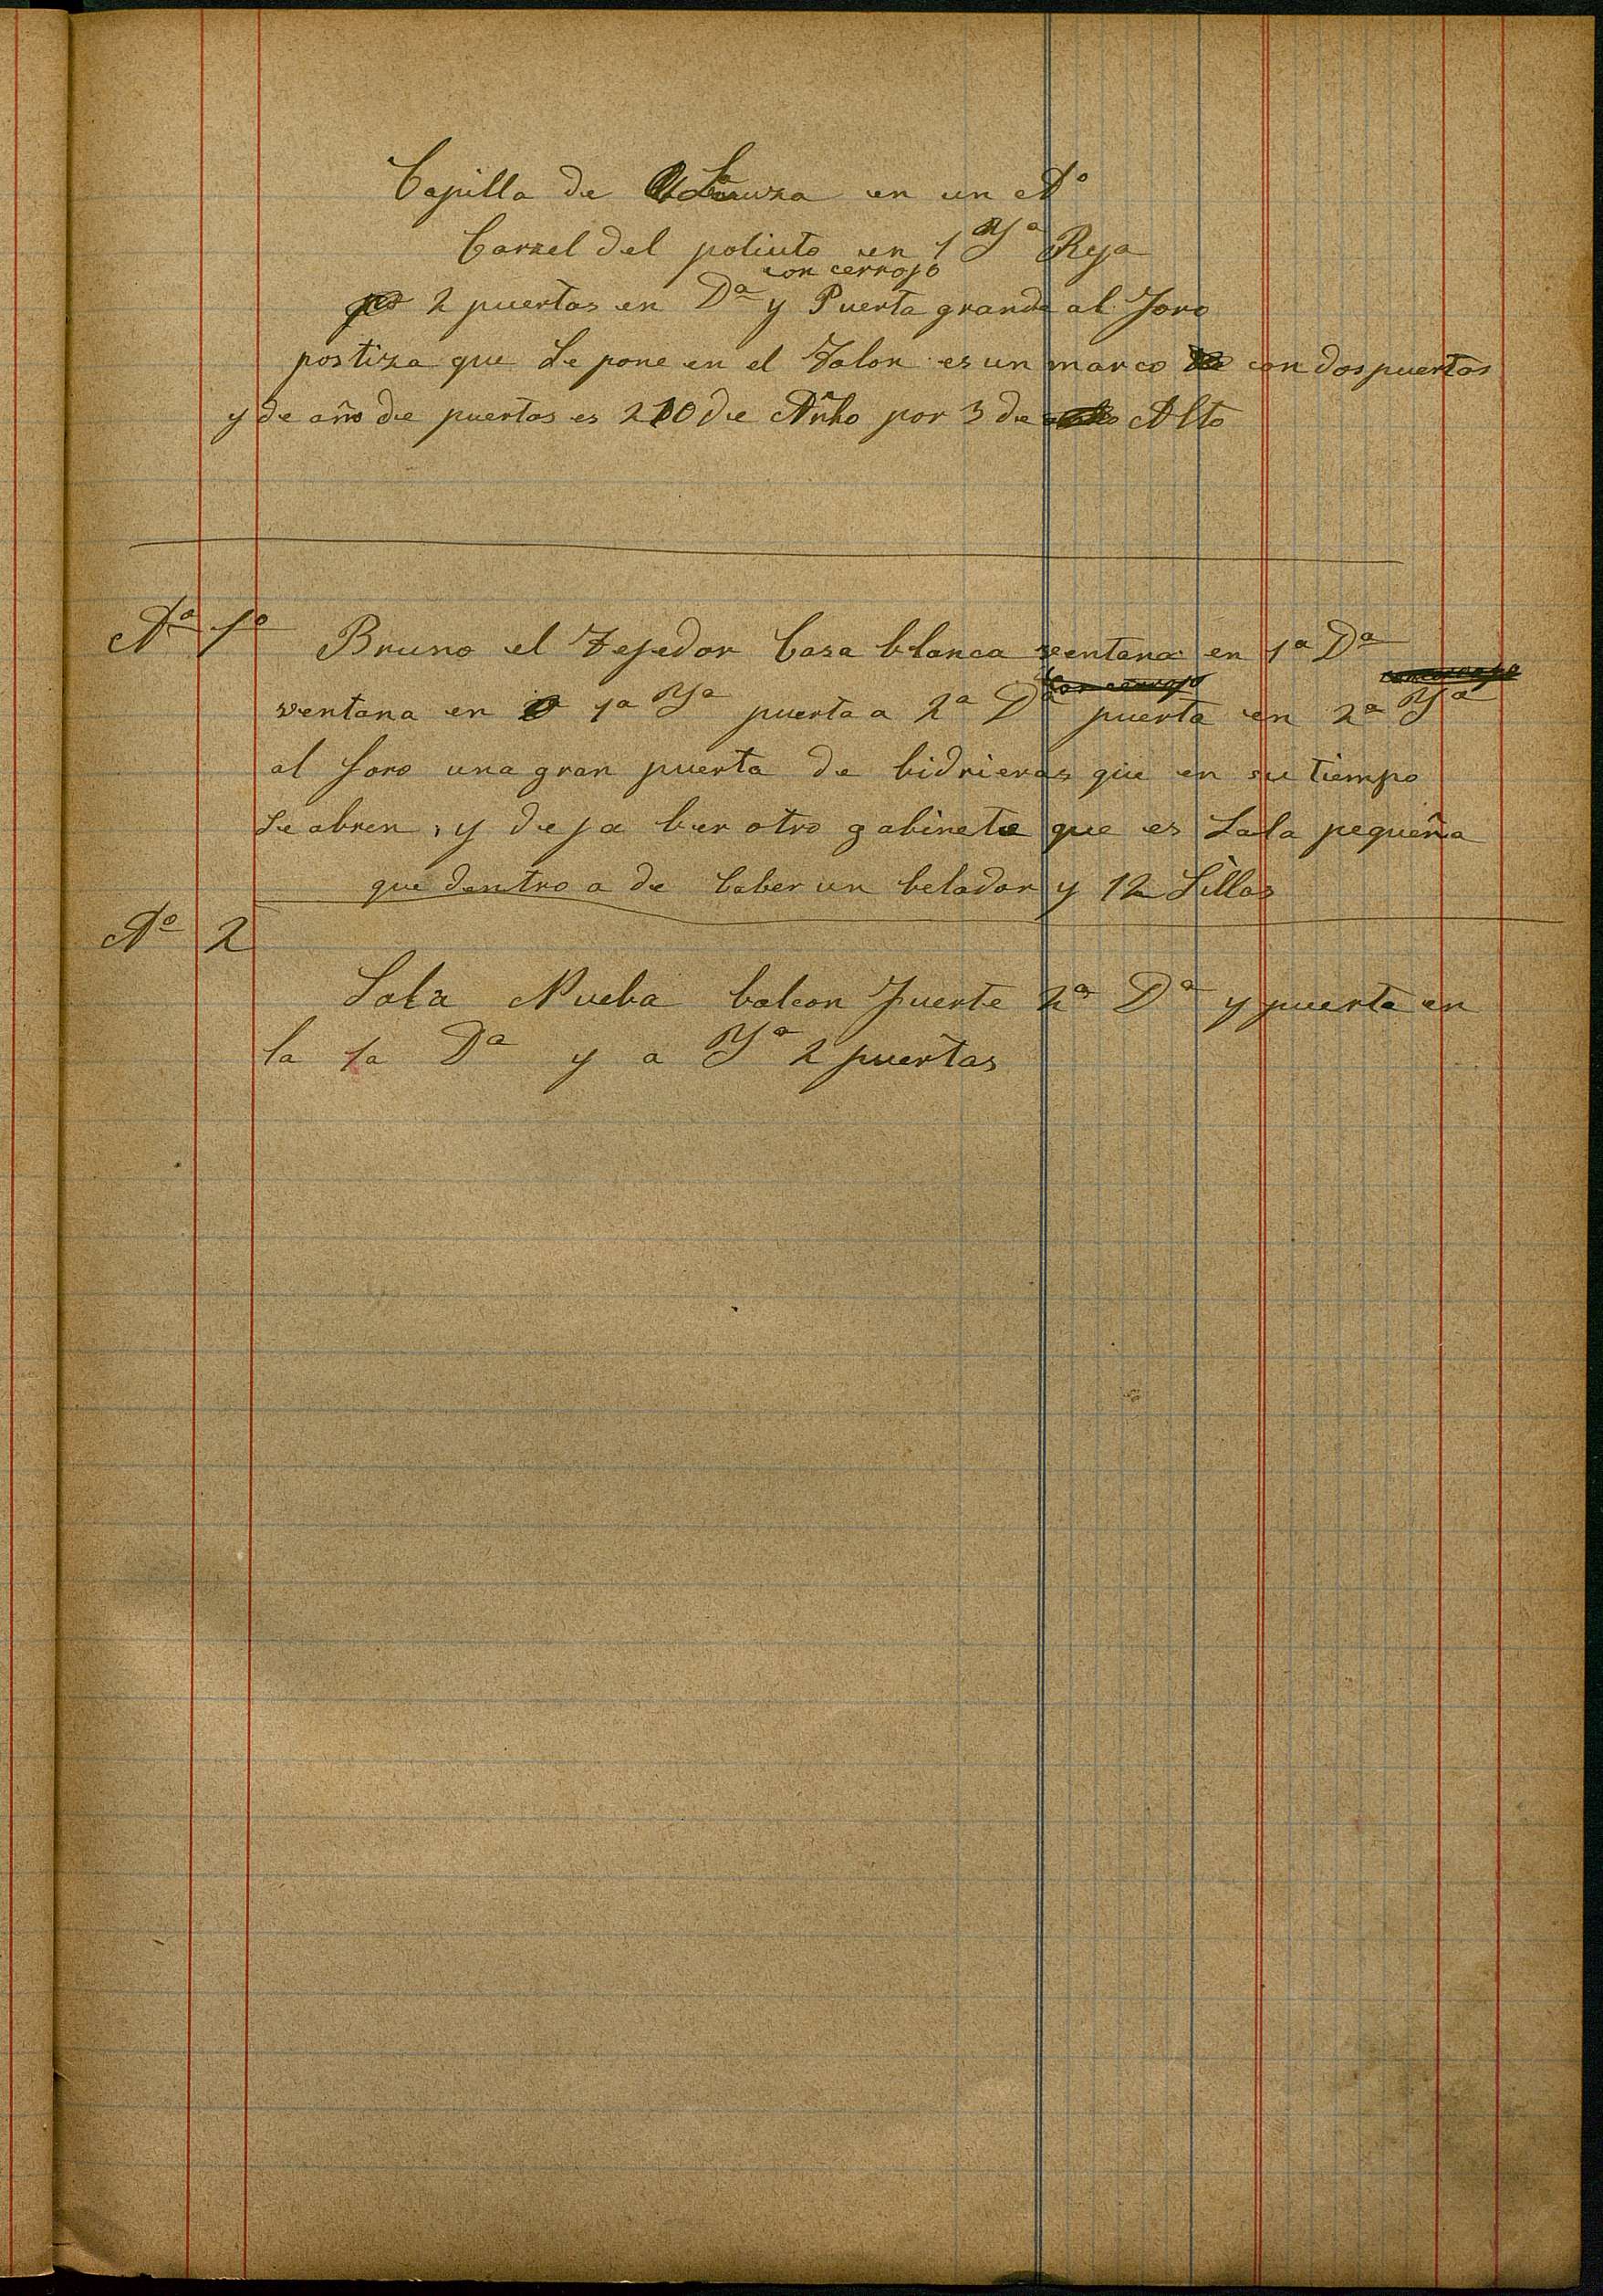 Capilla de Lanuza en un Aº
Carzel del poliuto en 1 Yª Reja
con cerrojo
2 puertas en Dª y Puerta grande al Foro
postiza que Se pone en el Talon es un marco con dos puertas
y de año de puertas es 210 de Anho por 3 de Alto
Aº 1º Bruno el Tejedor Casa blanca ventana en 1ª Dª
con cerrojo con cerrojo
ventana en 1ª Yª puerta a 2ª Dª puerta en 2ª Yª
al foro una gran puerta de bidrieras que en su tiempo
Se abren, y deja ber otro gabinete que es Sala pequeña
que dentro a de baber un belador y 12 Sillas
Aº 2
Sala Nueba balcon fuerte 2ª Dª y puerta en
la 1a Dª y a Yª 2 puertas